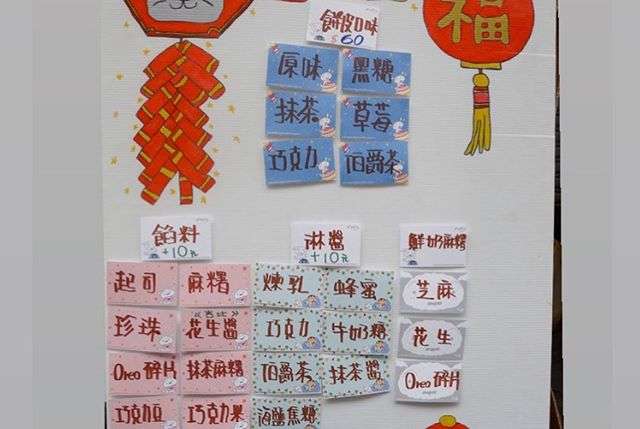 福
餅皮口味
$ 60
原味 黑糖
抹茶 草莓
巧克力 伯爵茶
餡料
+10元
淋醬
+10元
鮮奶麻糬
起司 麻糬 煉乳 蜂蜜 芝麻
珍珠 花生醬 巧克力 牛奶糖 花生
Oreo碎片 抹茶麻糬 伯爵茶 抹茶醬 Oreo碎片
巧克豆 巧克果 海鹽焦糖